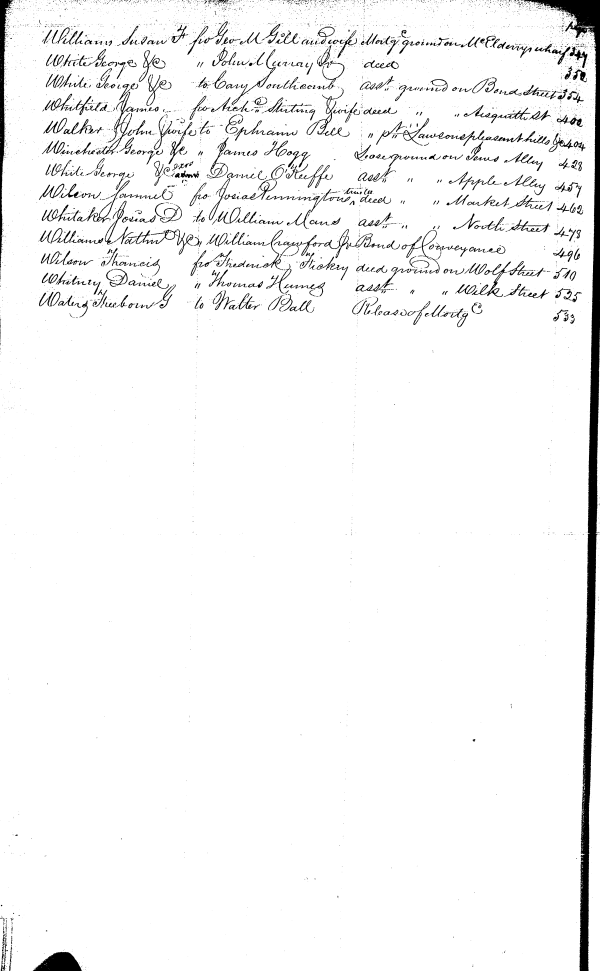 Williams Susan F fro Geo M Gill and wife Mortge ground on McElderrys wharf 347
White George &c " John Murray Jr deed 350
White George &c to Cary Southcomb asst ground on Bond Street 354
Whitfield James fro Nichs Stirling & wife deed " " Aisquith St 402
Walker John & wife to Ephraim Bell " pt Lawsons pleasant hills &c 404
Winchester George &c " James Hogg Lease ground on Jews Alley 428
White George &c exrs admrs Daniel O'Keiffe asst " " Apple Alley 457
Wilson Samuel fro Josias Pennington trustee deed " " Market Street 462
Whitaker Josias D to William Mans asst " " North Street 473
Williams Nathnl &c " William Crawford Jr Bond of Conveyance 496
Wilson Francis fro Frederick Fickey deed ground on Wolf Street 510
Whitney Daniel " Thomas Humes asst " " Wilk Street 525
Waters Freeborn G to Walter Ball Release of Mortge 533